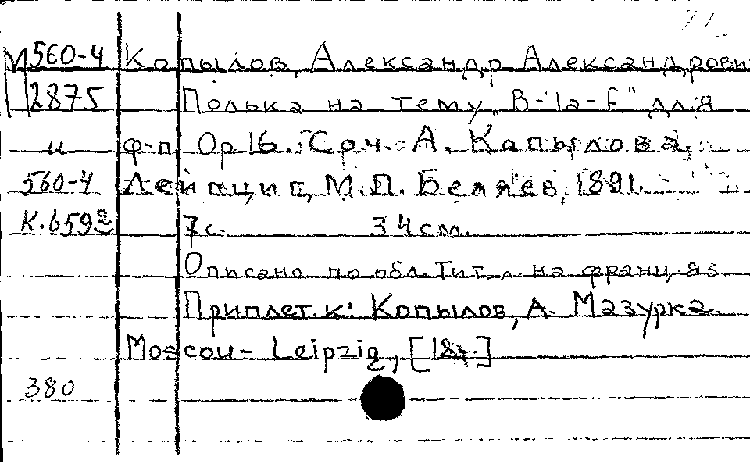 М 560-4 Копылов, Александр Александрови
2875 Полька на тему „В-la-f" для
и ф-п. Ор 16. Соч. А. Копылова.
560-4 Лейпциг, М. П. Беляев, 1891.
К.659 7с. 34см.
Описано по обл. Тит. л. на франц. яз.
Приплет. к: Копылов, А. Мазурка.
Moscou - Leipzig, [18 ]
380